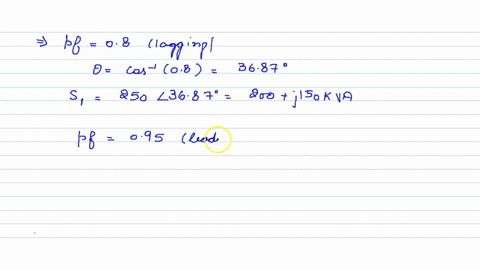 ⇒ pf = 0.8 (lagging)
θ = cos⁻¹ (0.8) = 36.87°
S₁ = 250 ∠36.87° = 200 + j150 kVA
pf = 0.95 (lead